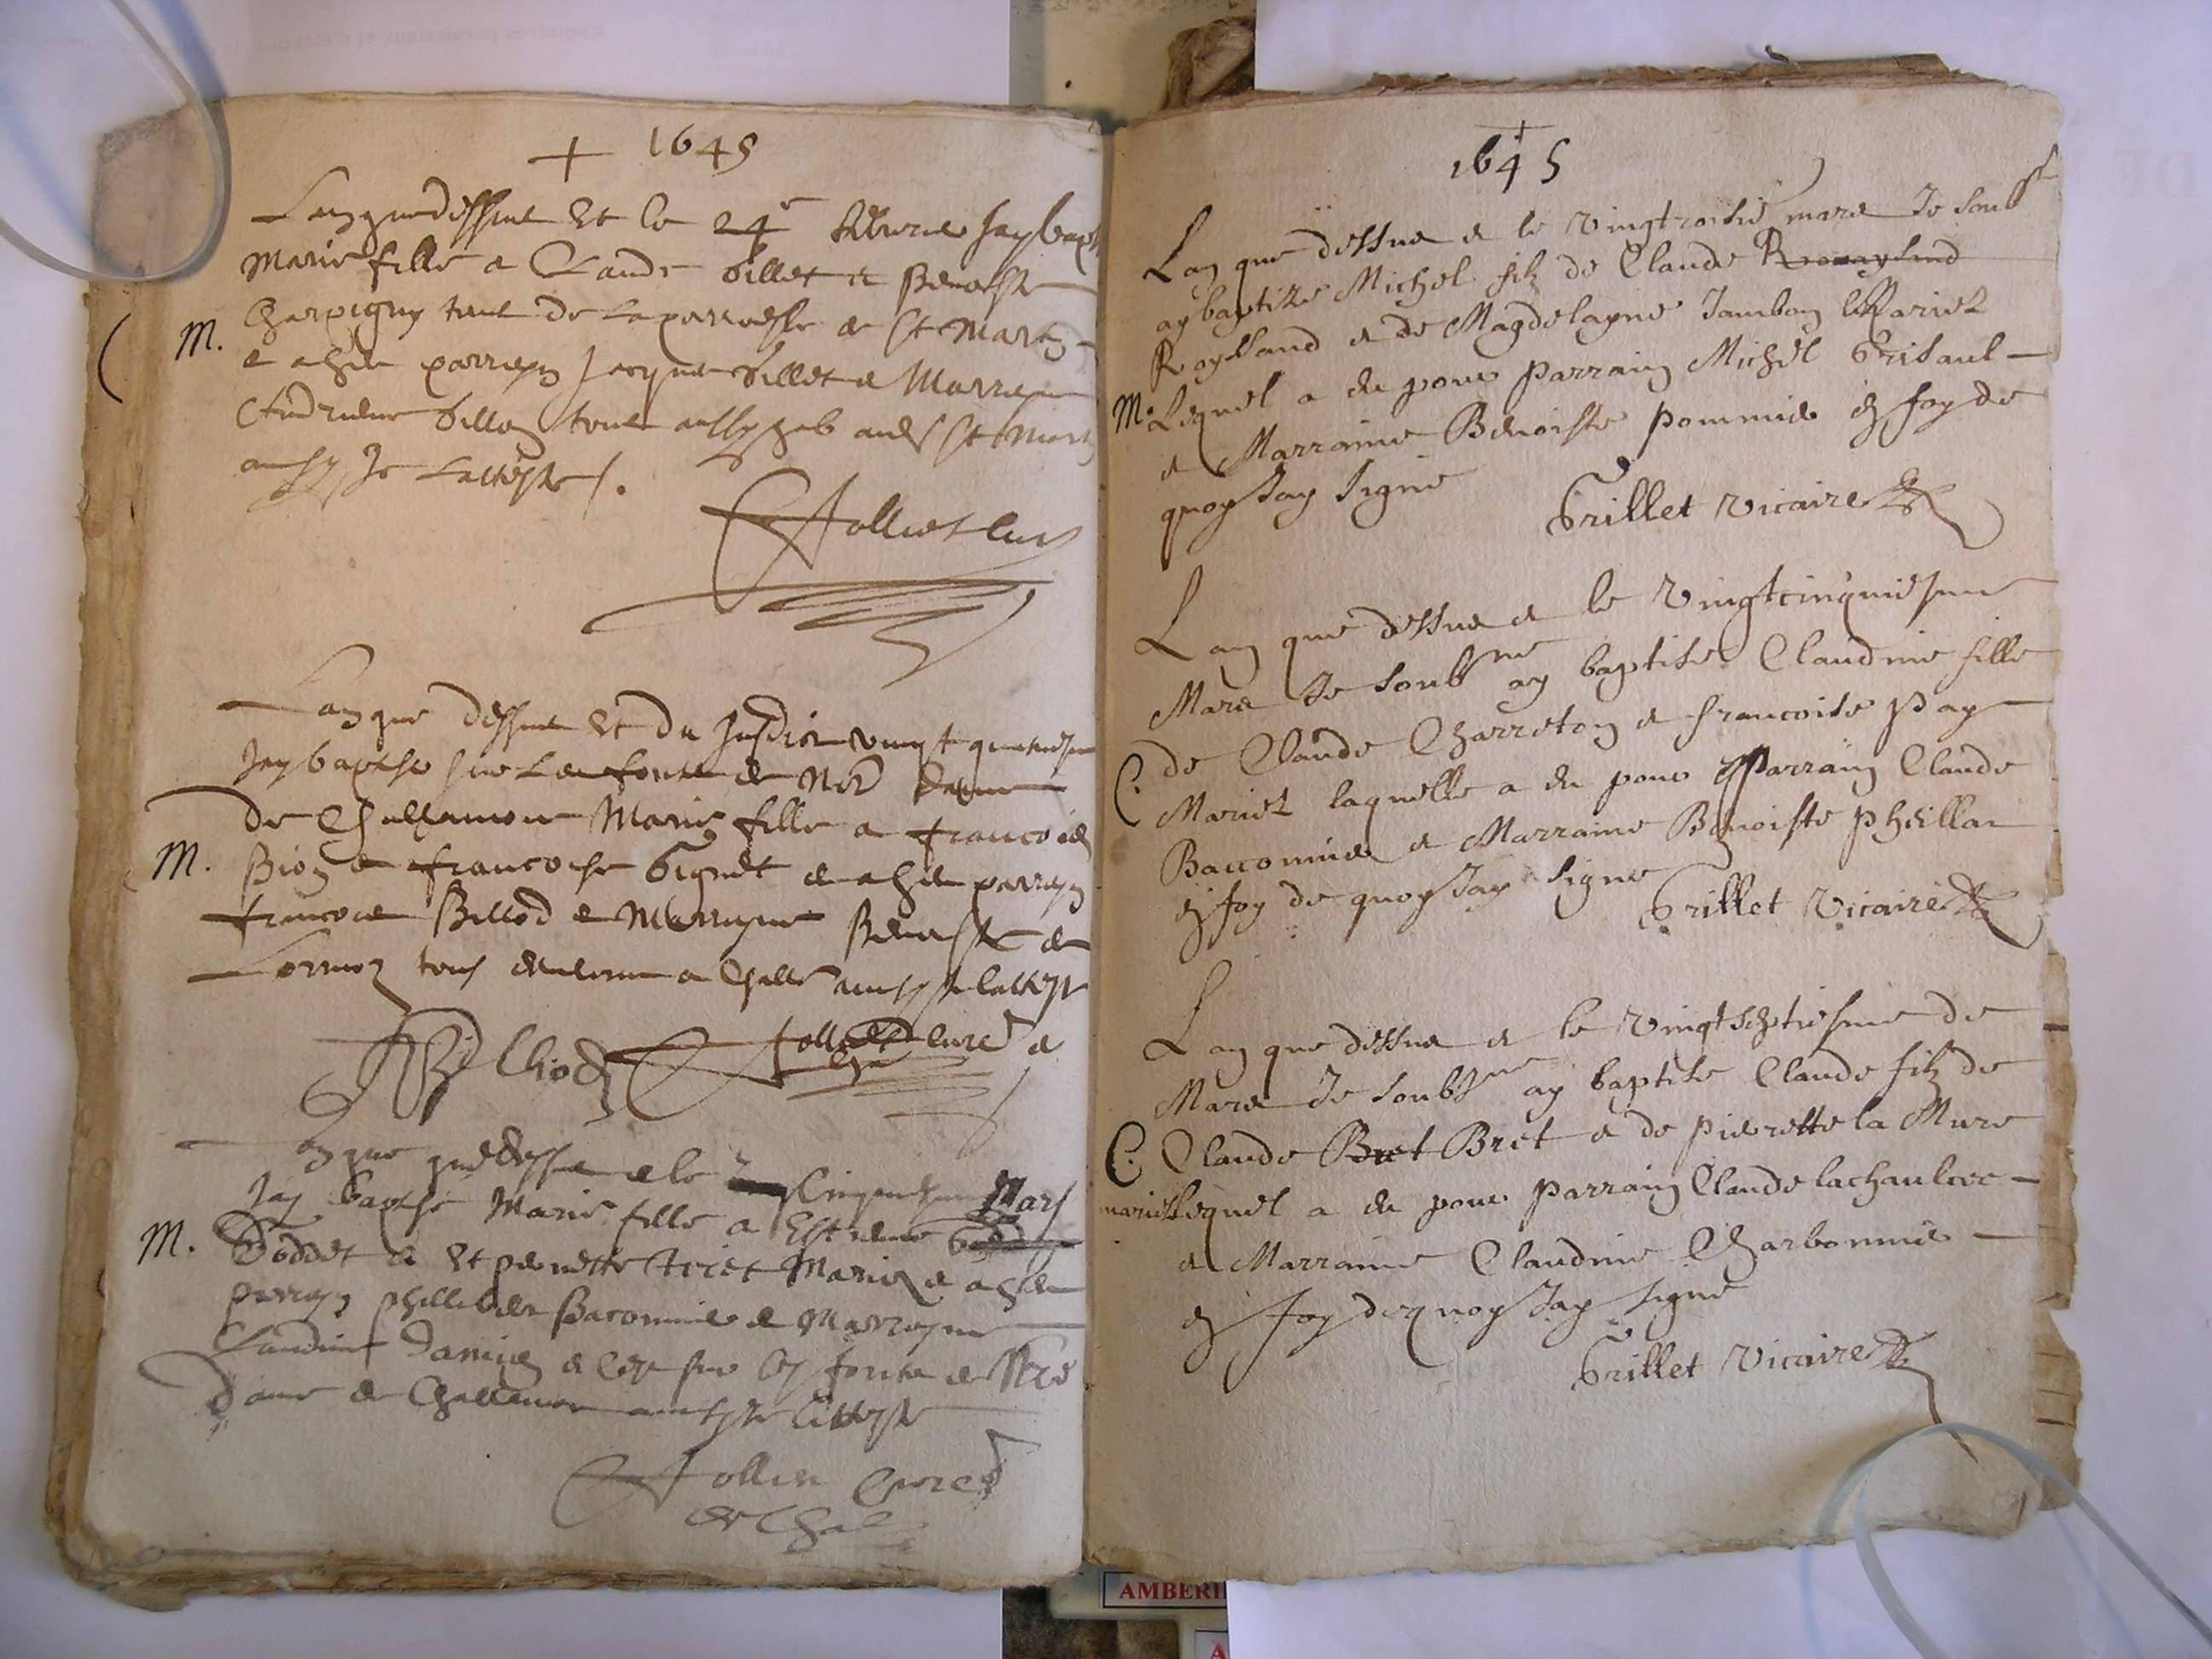 + 1645
Lan que dessus et le 24e febvrier Jay bapt
Marie fille a Claude Billet et Benoiste
Charvigny tous de la parroesse de St Martin
M.
e a heu parrien Jacques Billet e Marrene
Andrieue Billon tous aussy hab audt St Mart
ainsy Je Latteste.
Jolliet cure
Lan que dessus et du Jusdict vingt quatriesme
Jay baptisé sur Les fonts de Nre dame
de Challamont Marie fille a francois
M.
Bion e francoise Gignet e a heu parrien
francois Billiod e Marrene Benoiste de
Lormoz tous de Challt ainsy Je latteste
Billiod
Jolliet curé
an que que dessus e le cinquiesme Mars
Jay baptisé Marie fille a Estienne
M.
Boddet et pernette Tricet Mariez e a heu
parrien Phillibert Baconnier e Marrene
Claudine Damien e ce sur les fonts de Nre
dame de Challamont ainsy Je Latteste
Jolliet Curé
de Chal
1645
Lan que dessus e le vingtroisie mars Je soubst
ay baptize Michel filz de Claude
Roylland e de Magdelayne Jambon Mariez
M. Lequel a eu pour parrain Michel Grisaul
e Marraine Benoiste pommier en foy de
quoy Jay signé
Grillet vicaire
Lan que dessus e le vingtcinquiesme
Mars Je soubne ay baptise Claudine fille
de Claude Charreton e francoise Pay
C.
Mariez laquelle a eu pour Parrain Claude
Bacconnier e Marraine Benoiste Pheillar
en foy de quoy Jay signé
Grillet Vicaire
Lan que dessus e le vingtseptiesme de
Mars Je soubsne ay baptise Claude filz de
C. Claude Bret Bret e de pierrette la Mure
mariez Lequel a eu pour parrain Claude lachaulcee
e Marraine Claudine Charbonnier
en foy de quoy Jay signé
Grillet Vicaire
AMBERI
A